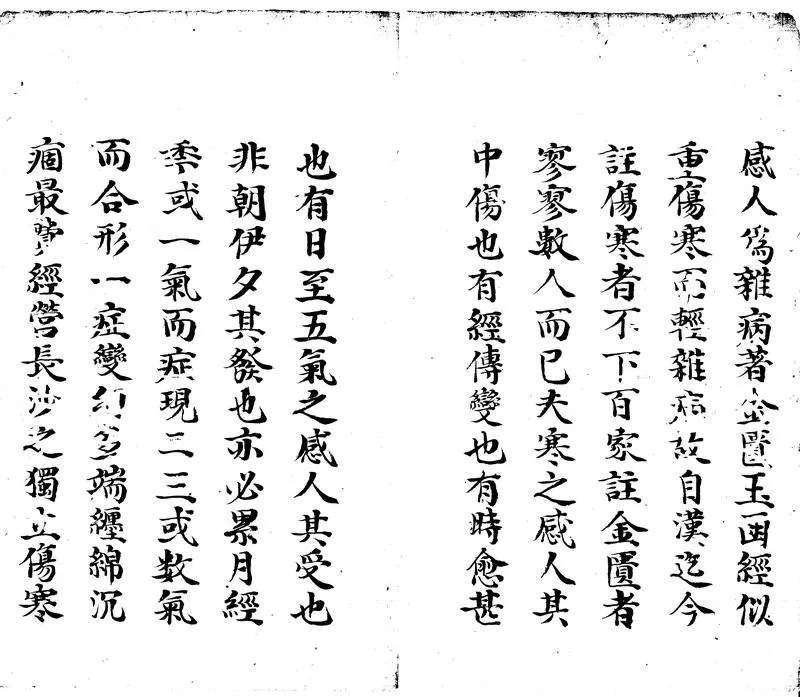 感人爲雜病著金匱玉函經似
重傷寒而輕雜病故自漢迄今
註傷寒者不下百家註金匱者
寥寥數人而已夫寒之感人其
中傷也有經傳變也有時愈甚
也有日至五氣之感人其受也
非朝伊夕其發也亦必累月經
季或一氣而症現二三或数氣
而合形一症變幻多端纏綿沉
痼最費經營長沙之獨立傷寒